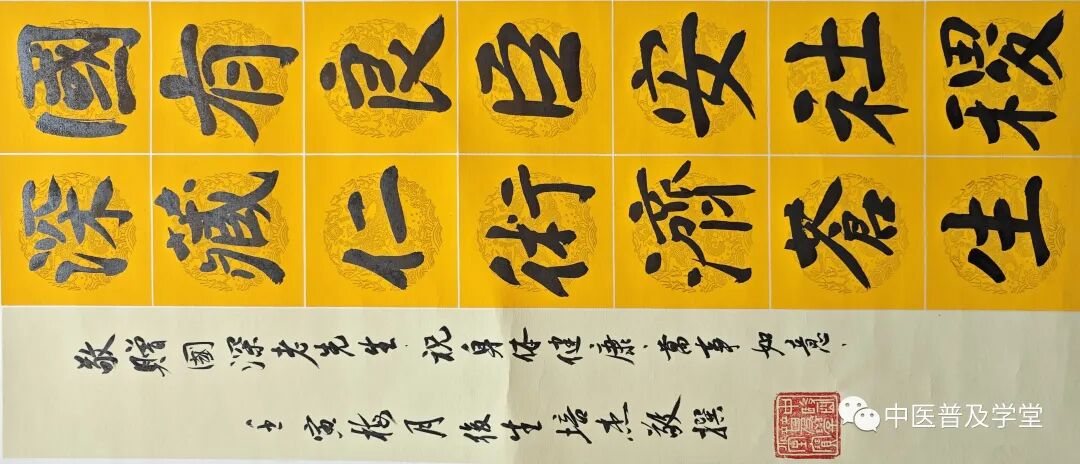 國有良臣安社稷
深藏仁術濟蒼生
敬贈國深老先生.祝身体健康.萬事如意.
壬寅梅月後生培杰敬撰
中医普及学堂